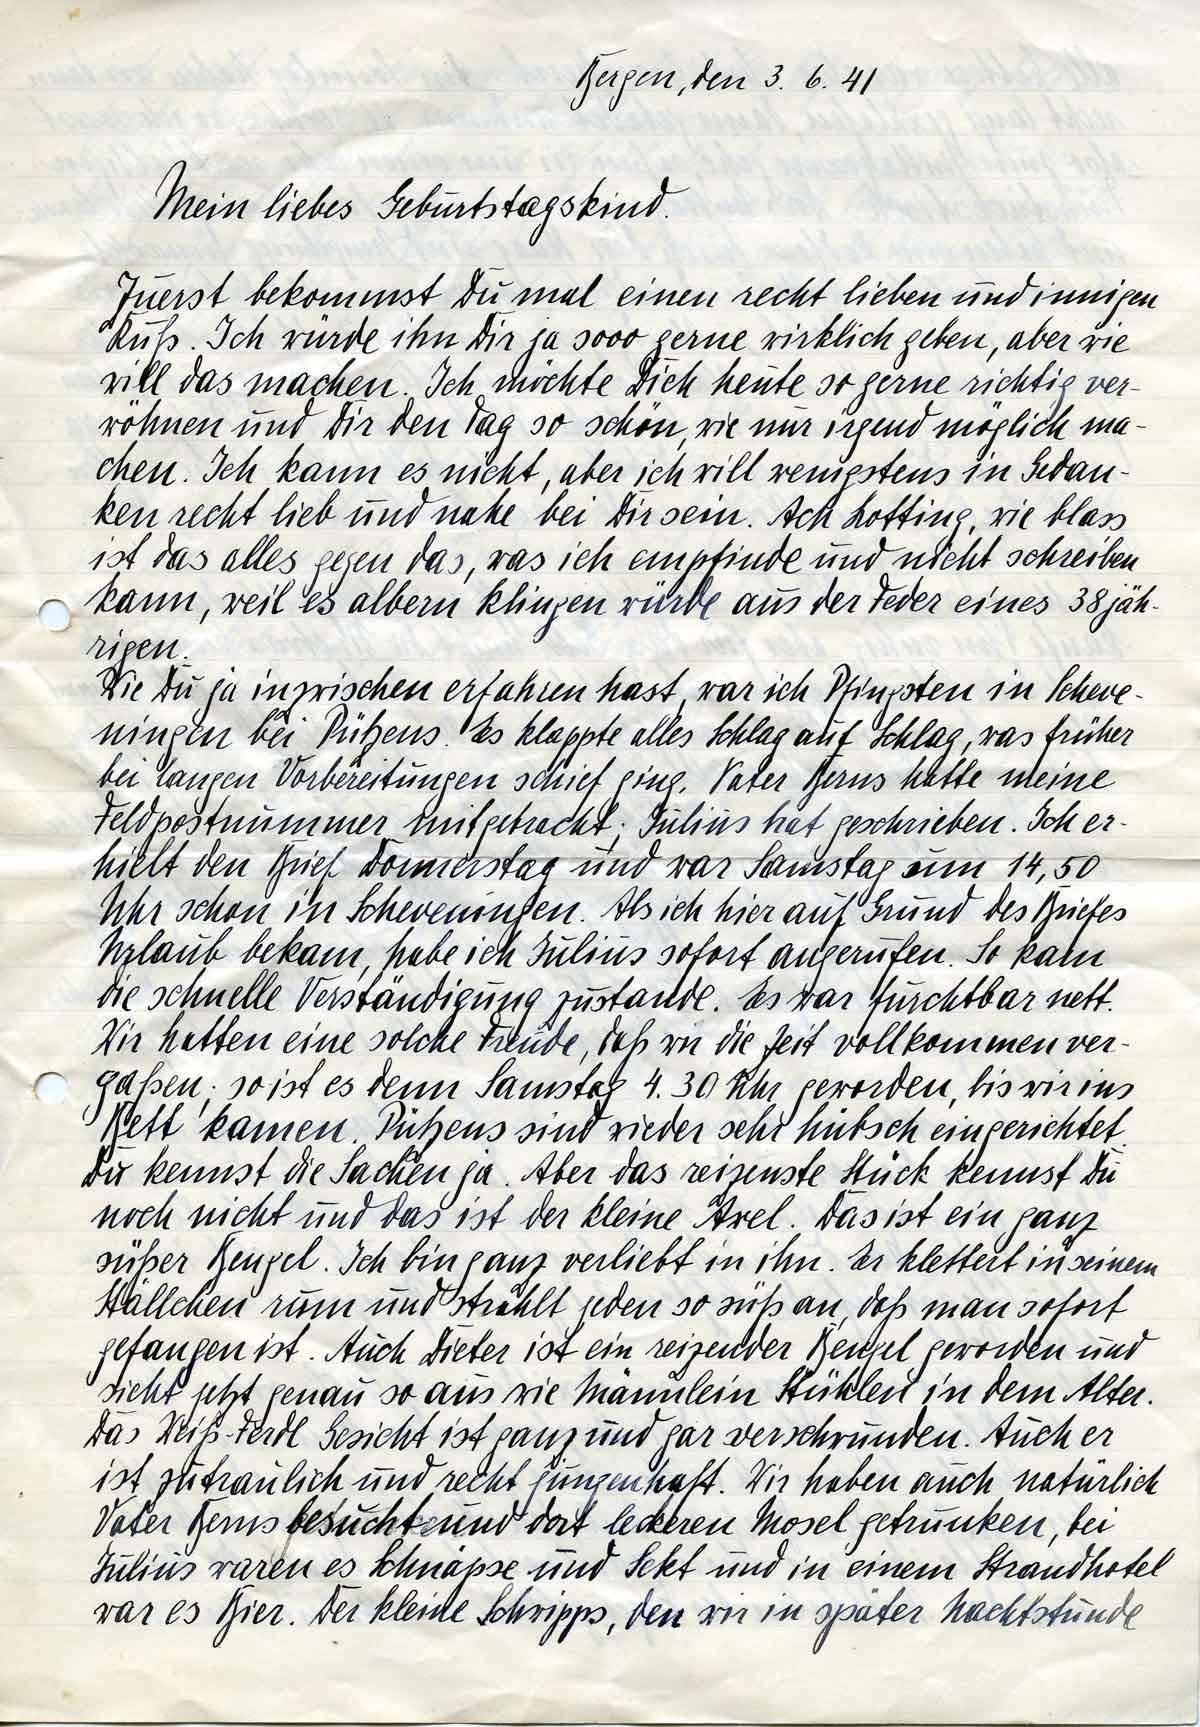 Bergen, den 3. 6. 41
Mein liebes Geburtstagskind.
Zuerst bekommst Du mal einen recht lieben und innigen
Kuß. Ich würde ihn Dir ja sooo gerne wirklich geben, aber wie
will das machen. Ich möchte Dich heute so gerne richtig ver-
wöhnen und Dir den Tag so schön, wie nur irgend möglich ma-
chen. Ich kann es nicht, aber ich will wenigstens in Gedan-
ken recht lieb und nahe bei Dir sein. Ach Lotting, wie blass
ist das alles gegen das, was ich empfinde und nicht schreiben
kann, weil es albern klingen würde aus der Feder eines 38jäh-
rigen.
Wie Du ja inzwischen erfahren hast, war ich Pfingsten in Scheve-
ningen bei Pützens. Es klappte alles Schlag auf Schlag, was früher
bei langen Vorbereitungen schief ging. Vater Berns hatte meine
Feldpostnummer mitgebracht; Julius hat geschrieben. Ich er-
hielt den Brief Donnerstag und war Samstag um 14,50
Uhr schon in Scheveningen. Als ich hier auf Grund des Briefes
Urlaub bekam, habe ich Julius sofort angerufen. So kam
die schnelle Verständigung zustande. Es war furchtbar nett.
Wir hatten eine solche Freude, daß wir die Zeit vollkommen ver-
gaßen; so ist es denn Samstag 4.30 Uhr geworden, bis wir ins
Bett kamen. Pützens sind wieder sehr hübsch eingerichtet.
Du kennst die Sachen ja. Aber das reizenste Stück kennst Du
noch nicht und das ist der kleine Axel. Das ist ein ganz
süßer Bengel. Ich bin ganz verliebt in ihn. Er klettert in seinem
Ställchen rum und strahlt jeden so süß an, daß man sofort
gefangen ist. Auch Dieter ist ein reizender Bengel geworden und
sieht jetzt genau so aus wie Männlein Stüklen in dem Alter.
Das Weiß-Ferdl Gesicht ist ganz und gar verschwunden. Auch er
ist zutraulich und recht jungenhaft. Wir haben auch natürlich
Vater Berns besucht und dort leckeren Mosel getrunken, bei
Julius waren es Schnäpse und Sekt und in einem Strandhotel
war es Bier. Der kleine Schwipps, den wir in später Nachtstunde